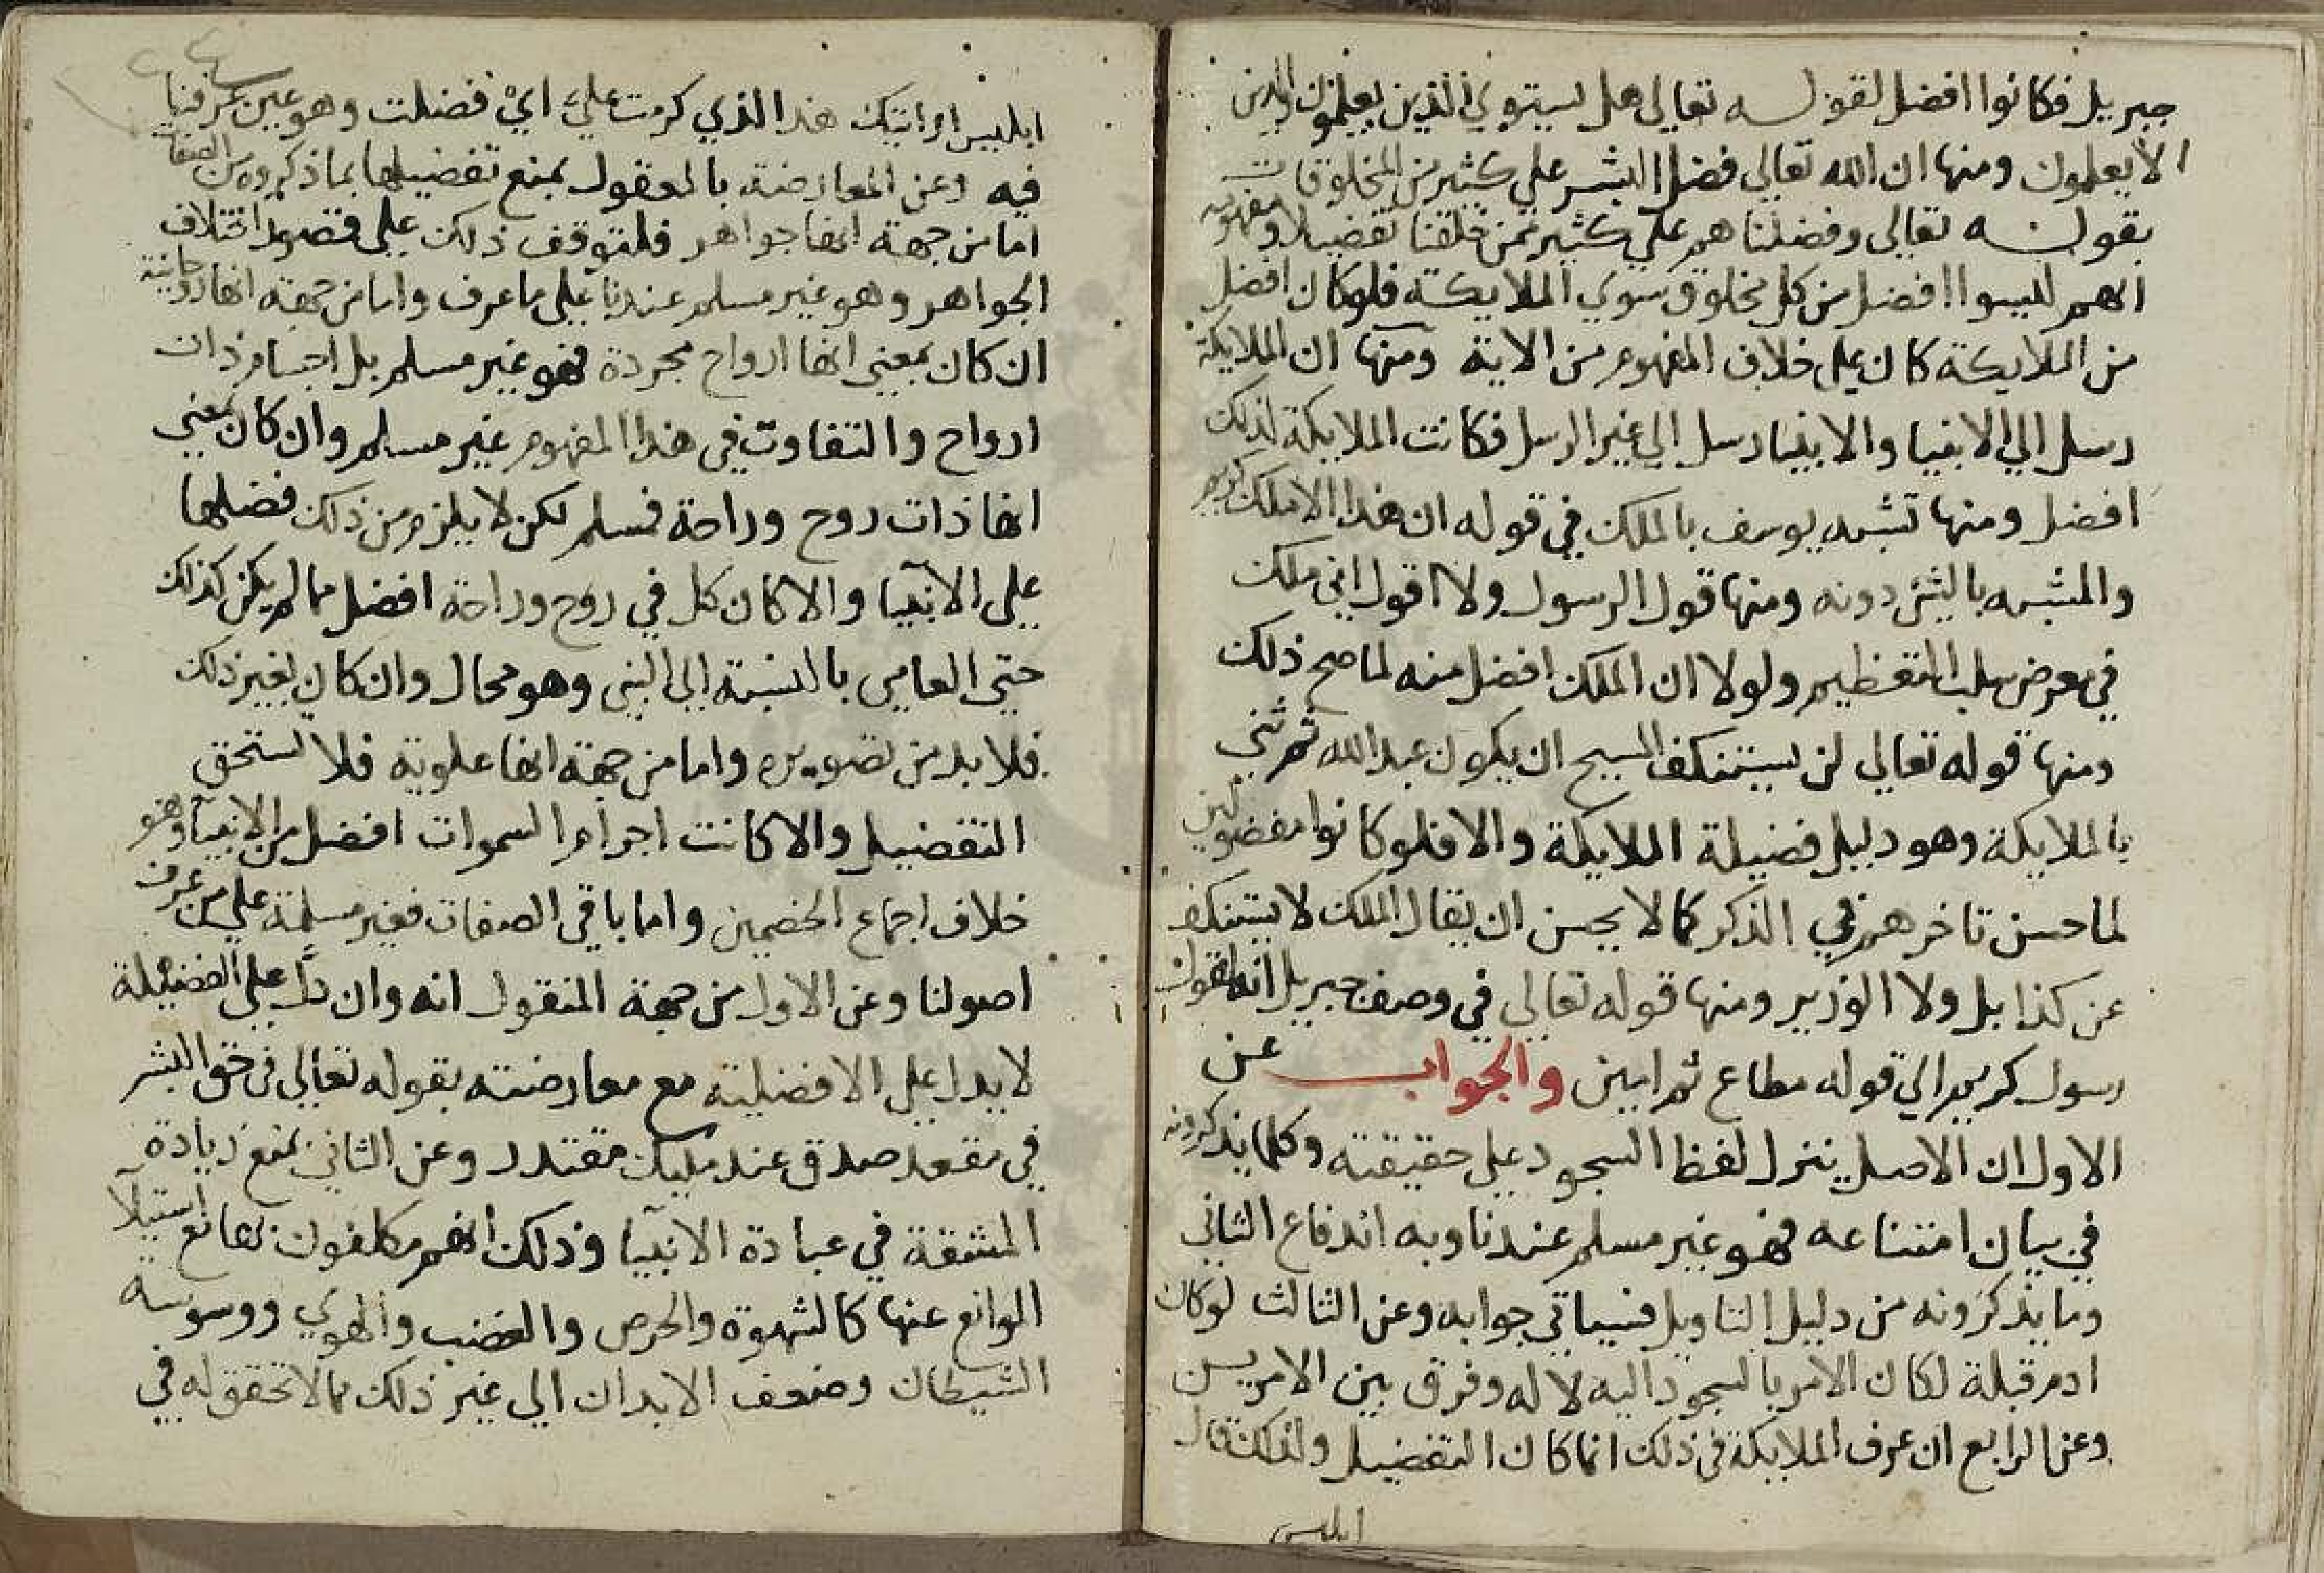 جبريل فكانوا افضل لقوله تعالى هل يستوي الذين يعلمون والذين
لا يعلمون ومنها ان الله تعالى فضل البشر على كثير من المخلوقات
بقوله تعالى وفضلناهم على كثير ممن خلقنا تفضيلا ومفهومه
انهم ليسوا افضل من كل مخلوق سوى الملايكة فلو كان افضل
من الملايكة كان على خلاف المفهوم من الاية ومنها ان الملايكة
رسل الى الانبيا والانبيا رسل الى غير الرسل فكانت الملايكة لذلك
افضل ومنها تشبه يوسف بالملك في قوله ان هذا الا ملك كريم
والمشبه بالشئ دونه ومنها قول الرسول ولا اقول اني ملك
في معرض سلب التعظيم ولولا ان الملك افضل منه لما صح ذلك
ومنها قوله تعالى لن يستنكف المسيح ان يكون عبد الله ثم ثنى
بالملايكة وهو دليل فضيلة الملايكة والا فلو كانوا مفضولين
لما حسن تاخرهم في الذكر كما لا يحسن ان يقال الملك لا يستنكف
عن كذا بل ولا الوزير ومنها قوله تعالى في وصف جبريل انه لقول
رسول كريم الى قوله مطاع ثم امين والجواب عن
الاول ان الاصل تنزل لفظ السجود على حقيقته وكلما يذكرونه
في بيان امتناعه فهو غير مسلم عندنا وبه اندفاع الثاني
وما يذكرونه من دليل التاويل فسياتي جوابه وعن الثالث لو كان
ادم قبلة لكان الامر بالسجود اليه لا له وفرق بين الامرين
وعن الرابع ان عرف الملايكة في ذلك انما كان التفضيل ولذلك قال
ابليس
ابليس ارايتك هذا الذي كرمت علي اي فضلت وهو عين عرفنا
فيه وعن المعارضة بالمعقول بمنع تفضيلها بما ذكروه من الصفات
اما من جهة انها جواهر فلتوقف ذلك على اختلاف
الجواهر وهو غير مسلم عندنا على ما عرف واما من جهة انها روحانية
ان كان بمعنى انها ارواح مجردة فهو غير مسلم بل اجسام ذات
ارواح والتفاوت في هذا المفهوم غير مسلم وان كان بمعنى
انها ذات روح وراحة فمسلم لكن لا يلزم من ذلك فضلها
على الانبيآ والا كان كل في روح وراحة افضل مما لم يكن كذلك
حتى العامي بالنسبة الى النبي وهو محال وان كان لغير ذلك
فلا بد من تصويره واما من جهة انها علوية فلا تستحق
التفضيل والا كانت اجرام السموات افضل من الانبيآ وهو
خلاف اجماع الخصمين واما باقي الصفات فغير مسلمة على من عرف
اصولنا وعن الاول من جهة المنقول انه وان دل على الفضيلة
لا يدل على الافضلية مع معارضته بقوله تعالى في حق البشر
في مقعد صدق عند مليك مقتدر وعن الثاني بمنع زيادة
المشقة في عبادة الانبيآ وذلك انهم مكلفون بها مع استيلآ
الموانع عنها كالشهوة والحرص والغضب والهوي ووسوسة
الشيطان وضعف الابدان الى غير ذلك مما لا تحقق له في